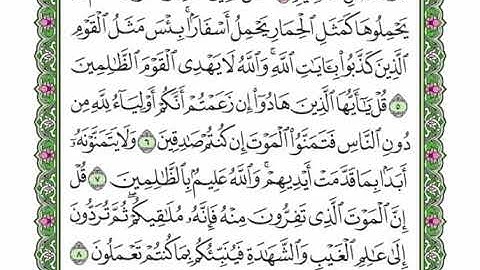 يَحْمِلُوهَا كَمَثَلِ الْحِمَارِ يَحْمِلُ أَسْفَارًا ۚ بِئْسَ مَثَلُ الْقَوْمِ
الَّذِينَ كَذَّبُوا بِآيَاتِ اللَّهِ ۚ وَاللَّهُ لَا يَهْدِي الْقَوْمَ الظَّالِمِينَ
٥ قُلْ يَا أَيُّهَا الَّذِينَ هَادُوا إِنْ زَعَمْتُمْ أَنَّكُمْ أَوْلِيَاءُ لِلَّهِ مِنْ
دُونِ النَّاسِ فَتَمَنَّوُا الْمَوْتَ إِنْ كُنْتُمْ صَادِقِينَ ٦ وَلَا يَتَمَنَّوْنَهُ
أَبَدًا بِمَا قَدَّمَتْ أَيْدِيهِمْ ۚ وَاللَّهُ عَلِيمٌ بِالظَّالِمِينَ ٧ قُلْ
إِنَّ الْمَوْتَ الَّذِي تَفِرُّونَ مِنْهُ فَإِنَّهُ مُلَاقِيكُمْ ۖ ثُمَّ تُرَدُّونَ
إِلَىٰ عَالِمِ الْغَيْبِ وَالشَّهَادَةِ فَيُنَبِّئُكُمْ بِمَا كُنْتُمْ تَعْمَلُونَ ٨